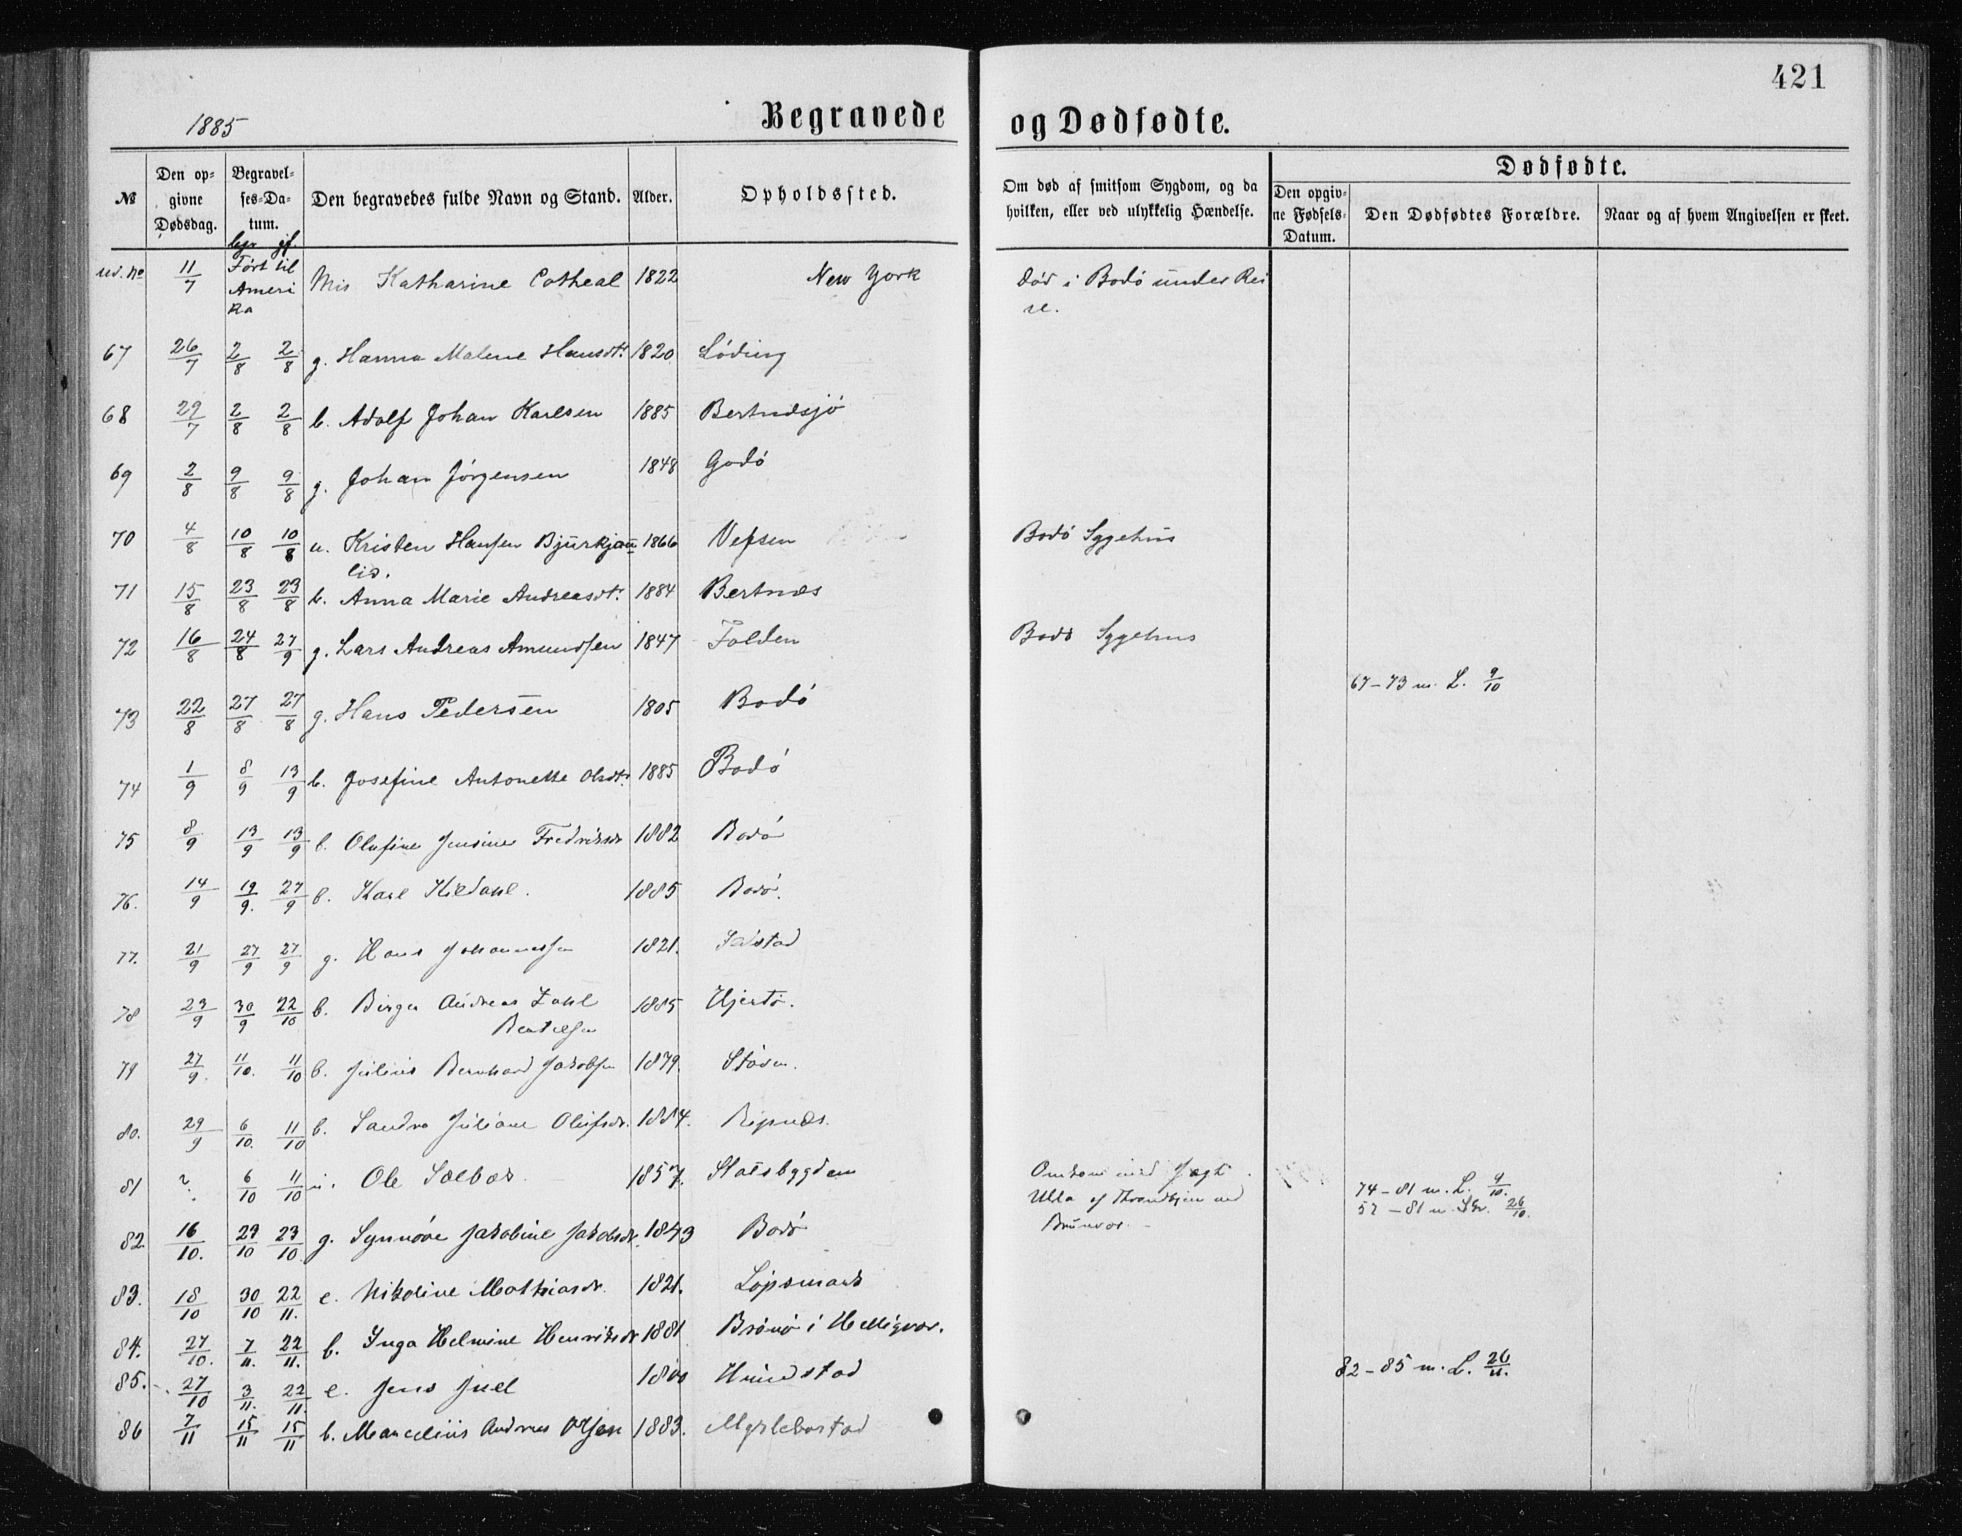 421
1885
Begravede og Dødfødte.
Dødfødte.
№ Den opgivne Dødsdag. Begravelses-Datum. Den begravedes fulde Navn og Stand. Alder. Opholdssted. Om død af smitsom Sygdom, og da hvilken, eller ved ulykkelig Hændelse. Den opgivne Fødsels-Datum. Den Dødfødtes Forældre. Naar og af hvem Angivelsen er skeet.
begr. jf.
ud. No 11/7 Ført til Amerika Mis Katharine Cotheal 1822 New York Død i Bodø under Reise.
67 26/7 2/8 2/8 g. Hanna Malene Hansdt. 1820 Løding
68 29/7 2/8 2/8 b. Adolf Johan Karlsen 1885 Bertnæsjø
69 2/8 9/8 9/8 g. Johan Jørgensen 1848 Godø
70 4/8 10/8 10/8 u. Kristen Hansen Bjurkjaulid. 1866 Vefsen Bodø Sygehus
71 15/8 23/8 23/8 b. Anna Marie Andreasdt. 1884 Bertnæs
72 16/8 24/8 27/9 g. Lars Andreas Amundsen 1847 Folden Bodø Sygehus
67-73 m. L. 9/10
73 22/8 27/8 27/8 g. Hans Pedersen 1805 Bodø
74 1/9 8/9 13/9 b. Josefine Antonette Olsdt. 1885 Bodø
75 8/9 13/9 13/9 b. Olufine Jensine Fredriksdr 1882 Bodø
76. 14/9 19/9. 27/9 b. Karl Kildahl. 1885 Bodø.
77. 21/9 27/9 27/9 g. Hans Johannessen 1821. Seistad
78 23/9 30/9 22/10 b. Birger Andreas Zahl Bentelsen 1885 Hjertø.
79 27/9. 11/10. 11/10 b. Julius Bernhard Jakobsen 1879. Støver.
80. 29/9 6/10. 11/10 b. Sandra Juliane Olufsdr. 1884. Ripnæs.
81 ?. 6/10 11/10 u. Ole Solbær 1857. Statsbygden Omkom med Jagt Ulla af Throndhjem ved Brunvær.
74-81 m. L. 9/10.
57-81 m. Skr. 26/10.
82 16/10. 23/10 23/10 g. Synnøve Jakobine Jakobsdr. 1843 Bodø
83. 18/10 30/10 22/11. e. Nikoline Mathiasdr. 1821. Løpsmark
84. 27/10. 7/11. 22/11. b. Inga Helmine Henriksdr 1881 Brønø i Helligvær.
85. 27/10 3/11. 22/11. e. Jens Juel 1800 Hundstad 82-85 m. L. 26/11.
86 7/11 15/11 15/11 b. Marcelius Andreas Olsen 1883. Myklebostad